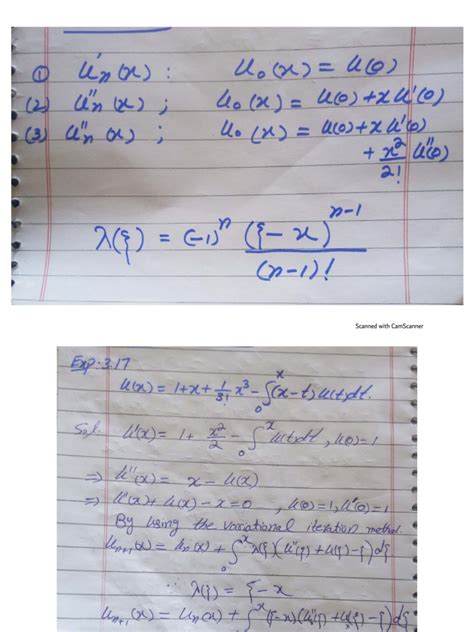 ① u'ₙ(x) : u₀(x) = u(0)
(2) u''ₙ(x) ; u₀(x) = u(0) + x u'(0)
(3) u''ₙ(x) ; u₀(x) = u(0) + x u'(0) + x²/2! u''(0)
λ(ξ) = (-1)ⁿ (ξ - x)ⁿ⁻¹ / (n-1)!
Scanned with CamScanner
Exp. 3.17
u(x) = 1 + x + 1/3! x³ - ∫₀ˣ (x-t) u(t) dt.
Sol. u'(x) = 1 + x²/2 - ∫₀ˣ u(t) dt, u(0) = 1
⇒ u''(x) = x - u(x)
⇒ u''(x) + u(x) - x = 0, u(0) = 1, u'(0) = 1
By using the variational iteration method.
uₙ₊₁(x) = uₙ(x) + ∫₀ˣ λ(ξ) (u''(ξ) + u(ξ) - ξ) dξ
∵ λ(ξ) = ξ - x
uₙ₊₁(x) = uₙ(x) + ∫₀ˣ (ξ-x) (u''(ξ) + u(ξ) - ξ) dξ